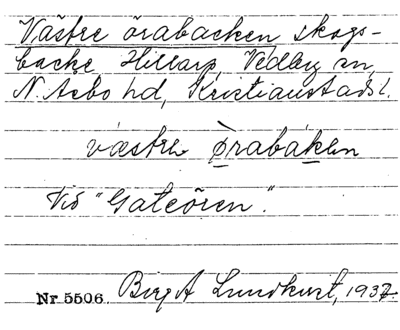 Västre örabacken, skogs-
backe Hillarp, Vedby sn,
N. Åsbo hd, Kristianstads l.
västre òrabáken
Vid "Gateören".
Nr 5506. Birgit Lundkvist, 1937.